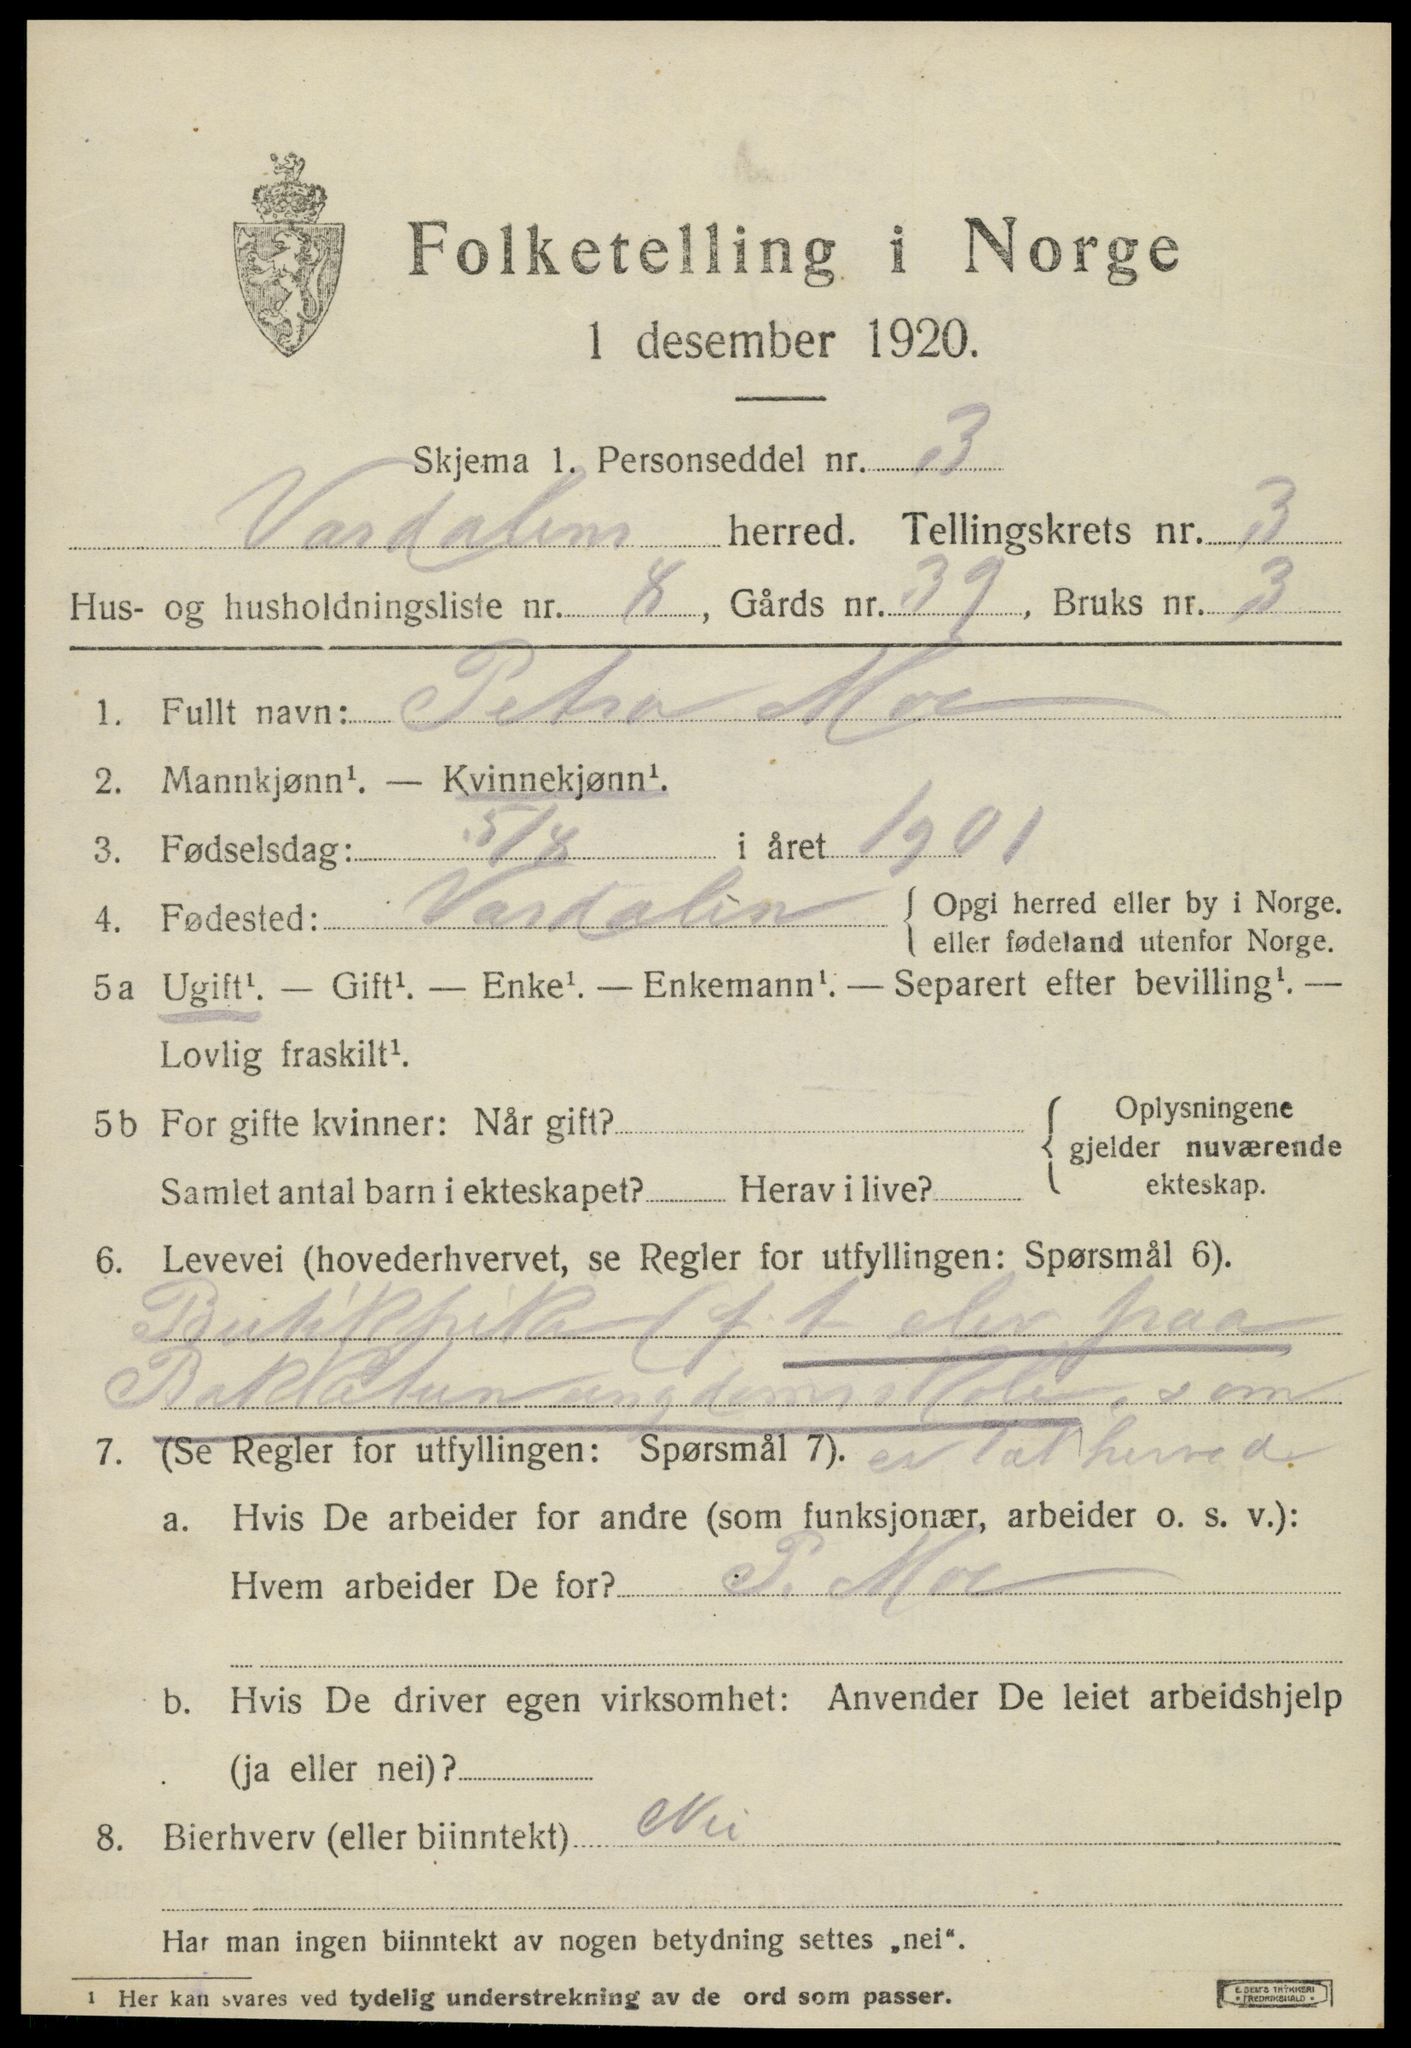 Folketelling i Norge
1 desember 1920.
Skjema 1. Personseddel nr. 3
Værdalens herred. Tellingskrets nr. 3
Hus- og husholdningsliste nr. 8, Gårds nr. 39, Bruks nr. 3
1. Fullt navn: Petra Moe
2. Mannkjønn¹. — Kvinnekjønn¹.
3. Fødselsdag: 5/8 i året 1901
4. Fødested: Værdalen { Opgi herred eller by i Norge.
eller fødeland utenfor Norge.
5a Ugift¹. — Gift¹. — Enke¹. — Enkemann¹. — Separert efter bevilling¹. —
Lovlig fraskilt¹.
5b For gifte kvinner: Når gift? { Oplysningene
gjelder nuværende
Samlet antal barn i ekteskapet? Herav i live? ekteskap.
6. Levevei (hovederhvervet, se Regler for utfyllingen: Spørsmål 6).
Butikpike (f. t. elev paa
ungdomsskole, som
7. (Se Regler for utfyllingen: Spørsmål 7). er herred
a. Hvis De arbeider for andre (som funksjonær, arbeider o. s. v.):
Hvem arbeider De for? P. Moe
b. Hvis De driver egen virksomhet: Anvender De leiet arbeidshjelp
(ja eller nei)?
8. Bierhverv (eller biinntekt) Nei
Har man ingen biinntekt av nogen betydning settes „nei“.
1 Her kan svares ved tydelig understrekning av de ord som passer.
E. SEM'S TRYKKERI
FREDRIKSHALD